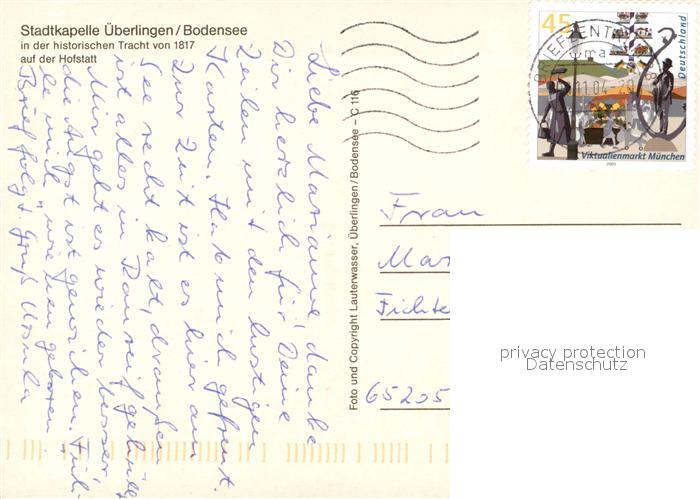 Stadtkapelle Überlingen/Bodensee
in der historischen Tracht von 1817
auf der Hofstatt
Liebe Marianne, danke
Dir herzlich für Deine
Zeilen mit den lustigen
Karten. Hab mich gefreut.
Zur Zeit ist es hier am
See recht kalt, draußen
ist alles in Rauhreif gehüllt
Mir geht es wieder besser,
die Angst ist gewichen. Füh-
le mich "wie neu geboren".
Brief folgt. Gruß Ursula
Foto und Copyright Lauterwasser, Überlingen/Bodensee – C 116
45
Deutschland
Viktualienmarkt München
2003
BRIEFZENTRUM
Frau
Mar
Fichte
65205
privacy protection
Datenschutz